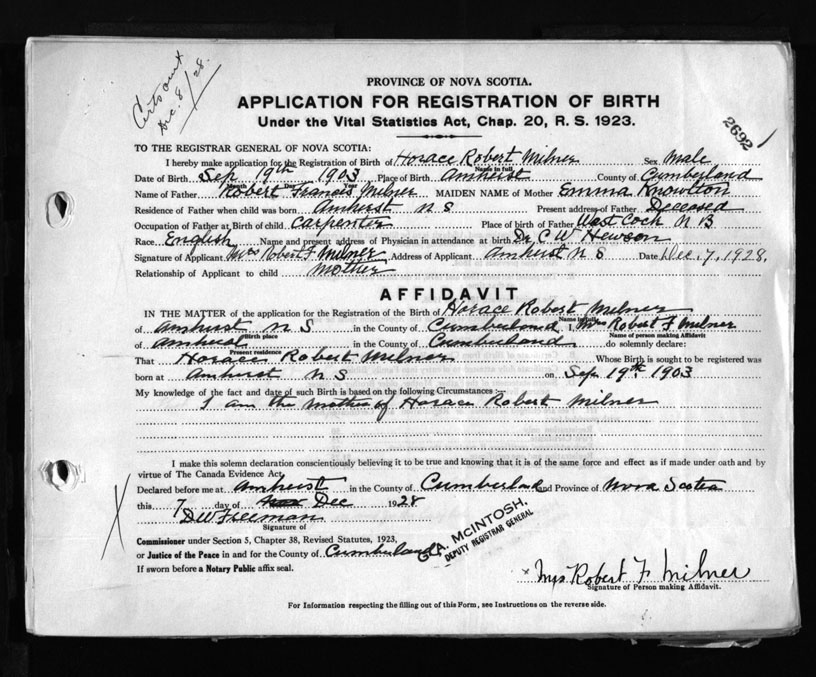 Certs out
Dec. 8/28.
PROVINCE OF NOVA SCOTIA.
APPLICATION FOR REGISTRATION OF BIRTH
Under the Vital Statistics Act, Chap. 20, R. S. 1923.
2692
TO THE REGISTRAR GENERAL OF NOVA SCOTIA:
I hereby make application for the Registration of Birth of Horace Robert Milner Sex Male
Name in full
Date of Birth Sep 19th 1903 Place of Birth Amherst County of Cumberland
Month Day Year
Name of Father Robert Francis Milner MAIDEN NAME of Mother Emma Knowlton
Name in full
Residence of Father when child was born Amherst N S Present address of Father Deceased
Occupation of Father at Birth of child Carpenter Place of birth of Father West Cock N B
Race English Name and present address of Physician in attendance at birth Dr C W Hewson
Signature of Applicant Mrs Robert F Milner Address of Applicant Amherst N S Date Dec. 7, 1928.
Relationship of Applicant to child Mother
AFFIDAVIT
IN THE MATTER of the application for the Registration of the Birth of Horace Robert Milner
Name in full
of Amherst N S in the County of Cumberland I, Mrs Robert F Milner
Birth place Name of person making Affidavit
of Amherst in the County of Cumberland do solemnly declare:
Present residence
That Horace Robert Milner Whose Birth is sought to be registered was
born at Amherst N S on Sep 19th 1903
My knowledge of the fact and date of such Birth is based on the following Circumstances :—
I am the Mother of Horace Robert Milner
I make this solemn declaration conscientiously believing it to be true and knowing that it is of the same force and effect as if made under oath and by
virtue of The Canada Evidence Act.
Declared before me at Amherst in the County of Cumberland and Province of Nova Scotia
this 7 day of Dec 1928
D W Freeman
Signature of
Commissioner under Section 5, Chapter 38, Revised Statutes, 1923,
or Justice of the Peace in and for the County of Cumberland
If sworn before a Notary Public affix seal.
A. McINTOSH,
DEPUTY REGISTRAR GENERAL
x Mrs Robert F Milner
Signature of Person making Affidavit.
For Information respecting the filling out of this Form, see Instructions on the reverse side.